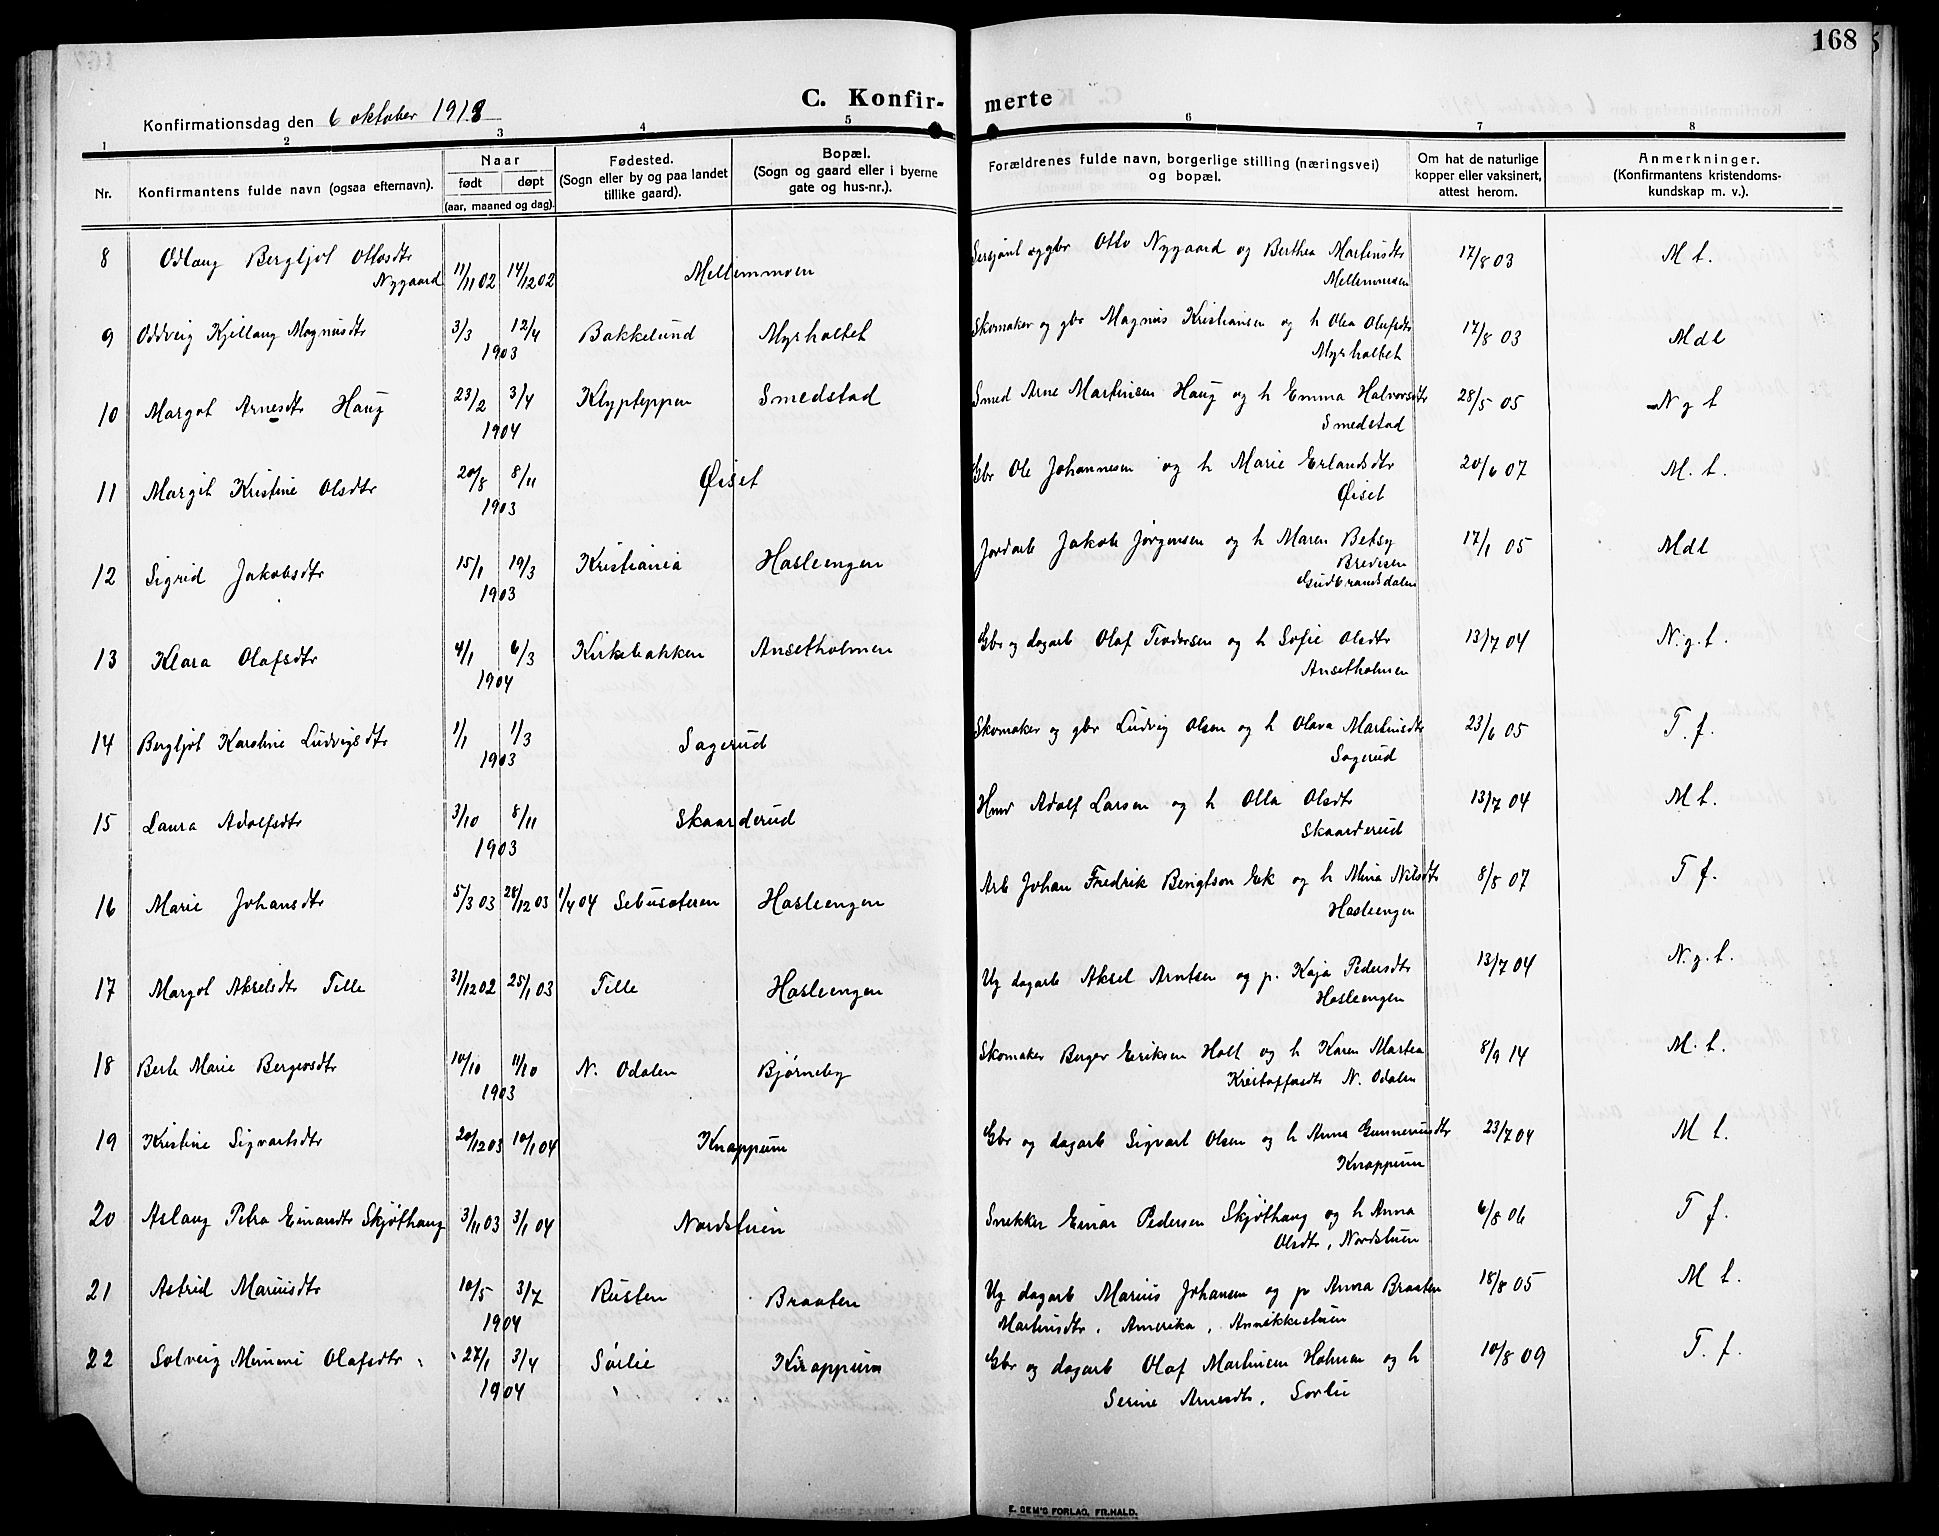 168
C. Konfirmerte
Konfirmationsdag den 6 oktober 1918
1 2 3 4 5 6 7 8
Nr. Konfirmantens fulde navn (ogsaa efternavn). Naar født døpt (aar, maaned og dag). Fødested. (Sogn eller by og paa landet tillike gaard). Bopæl. (Sogn og gaard eller i byerne gate og hus-nr.). Forældrenes fulde navn, borgerlige stilling (næringsvei) og bopæl. Om hat de naturlige kopper eller vaksinert, attest herom. Anmerkninger. (Konfirmantens kristendomskundskap m. v.).
8 Odlaug Bergljot Ottosdtr Nygaard 11/11 02 14/12 02 Mellemmoen Sersjant og gbr Otto Nygaard og Berthea Martinsdtr Mellemmoen 17/8 03 M t.
9 Oddveig Kjellaug Magnusdtr 3/3 12/4 1903 Bakkelund Myrholtet Skomaker og gbr Magnus Kristiansen og h Olea Olufsdtr Myrholtet 17/8 03 Mdl
10 Margot Arnesdtr Haug 23/2 3/4 1904 Klypteppen Smedstad Smed Arne Martinsen Haug og h Emma Halvorsdtr Smedstad 28/5 05 N g t
11 Margit Kristine Olsdtr 20/8 8/11 1903 Øiset Gbr Ole Johannesen og h Marie Erlandsdtr Øiset 20/6 07 M. t.
12 Sigrid Jakobsdtr 15/1 19/3 1903 Kristiania Hasleengen Jordarb Jakob Jørgensen og h Maren Betsy Bredesen Gudbrandsdalen 17/1 05 Mdl
13 Klara Olafsdtr 4/1 6/3 1904 Kirkebakken Ansetholmen Gbr og dagarb Olaf Teodorsen og h Sofie Olsdtr Ansetholmen 13/7 04 N. g. t.
14 Bergljot Karoline Ludvigsdtr 1/1 1/3 1903 Sagerud Skomaker og gbr Ludvig Olsen og h Olava Martinsdtr Sagerud 23/6 05 T. f.
15 Laura Adolfsdtr 3/10 8/11 1903 Skaarderud Hmd Adolf Larsen og h Olla Olsdtr Skaarderud 13/7 04 M t.
16 Marie Johansdtr 5/3 03 28/12 03 1/4 04 Sebusæteren Hasleengen Arb Johan Fredrik Bengtson Ek og h Mina Nilsdtr Hasleengen 8/8 07 T f.
17 Margot Akselsdtr Tille 31/12 02 25/1 03 Tille Hasleengen Ug dagarb Aksel Arntsen og p. Kaja Pedersdtr Hasleengen 13/7 04 N. g. t.
18 Berte Marie Bergersdtr 10/10 11/10 1903 N. Odalen Bjørneby Skomaker Berger Eriksen Holt og h Karen Martea Kristoffersdtr N. Odalen 8/9 14 M. t.
19 Kristine Sigvartsdtr 20/12 03 10/1 04 Knappum Gbr og dagarb Sigvart Olsen og h Anna Gunneriusdtr Knappum 23/7 04 M t.
20 Aslaug Petra Einarsdtr Skjøthaug 3/11 03 3/1 04 Nordstuen Snekker Einar Pedersen Skjøthaug og h Anna Olsdtr, Nordstuen 6/8 06 T f.
21 Astrid Mariusdtr 10/5 3/7 1904 Rusten Braaten Ug dagarb Marius Johansen og p Anna Braaten Martinsdtr, Amerika, Annikkestuen 18/8 05 M t.
22 Solveig Minani Olafsdtr 27/1 3/4 1904 Sørlie Knappum Gbr og dagarb Olaf Martinsen Holmen og h Serine Arnesdtr, Sørlie 10/8 09 T. f.
E. SEM'S FORLAG, FR.HALD.